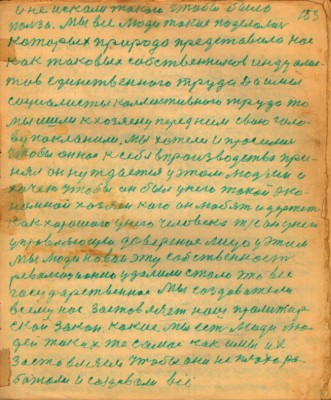 и не искали такой чтобы было 153
польза. Мы все люди такие поделались
которых природа представила нас
как таковых собственников индивидуалис
тов единственного труда Да или
социалисты коллективного труда то
мы и шли к хозяену перед ним свою голо
ву покланили. мы хотели и просили
чтобы он нас к себе в производство при
нял он нуждается у этом людьми и
хочет чтобы он был у него такой эко
номной хозяин каго он любят и держат
как хорошого у него человека
управляющего довереное лицо у этим
Мы люди новой эту собственность
революционно удалили стало это все
государственное Мы создователи
всему нас заставляет наш пролитар
ской закон, какие мы есть люди лю
дей таких же самое как и мы их
заставляем чтобы они не плохо ра
ботали и создавали все